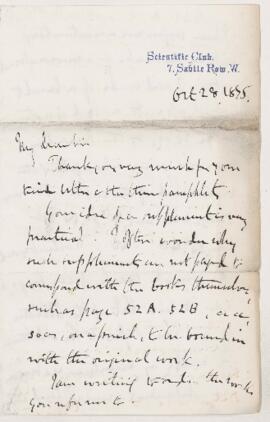 Scientific Club,
7, Savile Row, W.
Oct 28, 1885.
My dear Sir
Thank you very much for your
kind letter & the three pamphlets.
Your idea of a supplement is very
practical. I often wonder why
such supplements are not paged to
correspond with the books themselves,
such as page 52A. 52B, &c &
so on, on a principle, to be bound in
with the original work.
I am writing to order the works
you refer to.